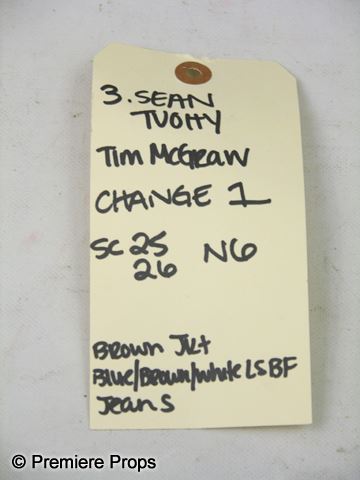 3. SEAN
TUOHY
Tim McGraw
CHANGE 1
SC 25 N6
26
Brown Jkt
Blue/Brown/white LS BF
Jeans
© Premiere Props